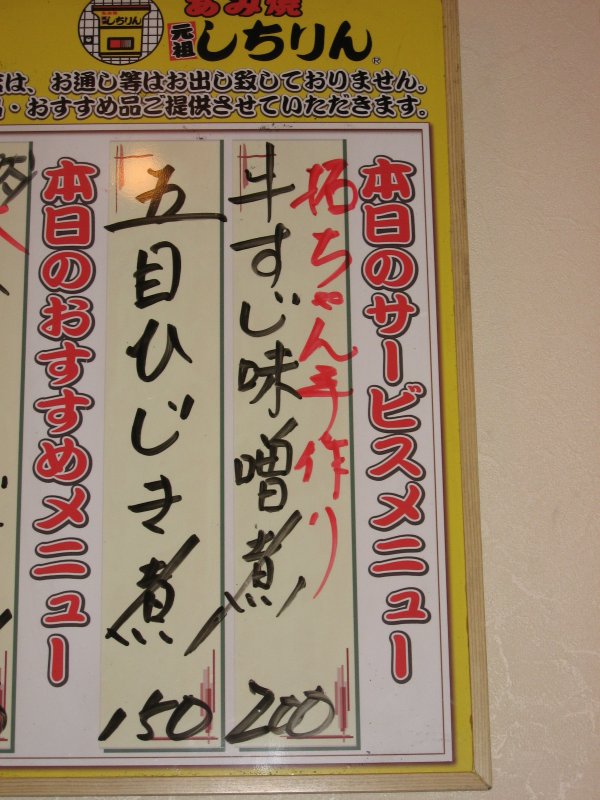 あみ焼
元祖
しちりん®
は、お通し等はお出し致しておりません。
・おすすめ品ご提供させていただきます。
本日のサービスメニュー
拓ちゃん手作り
牛すじ味噌煮
200
五目ひじき煮
150
本日のおすすめメニュー